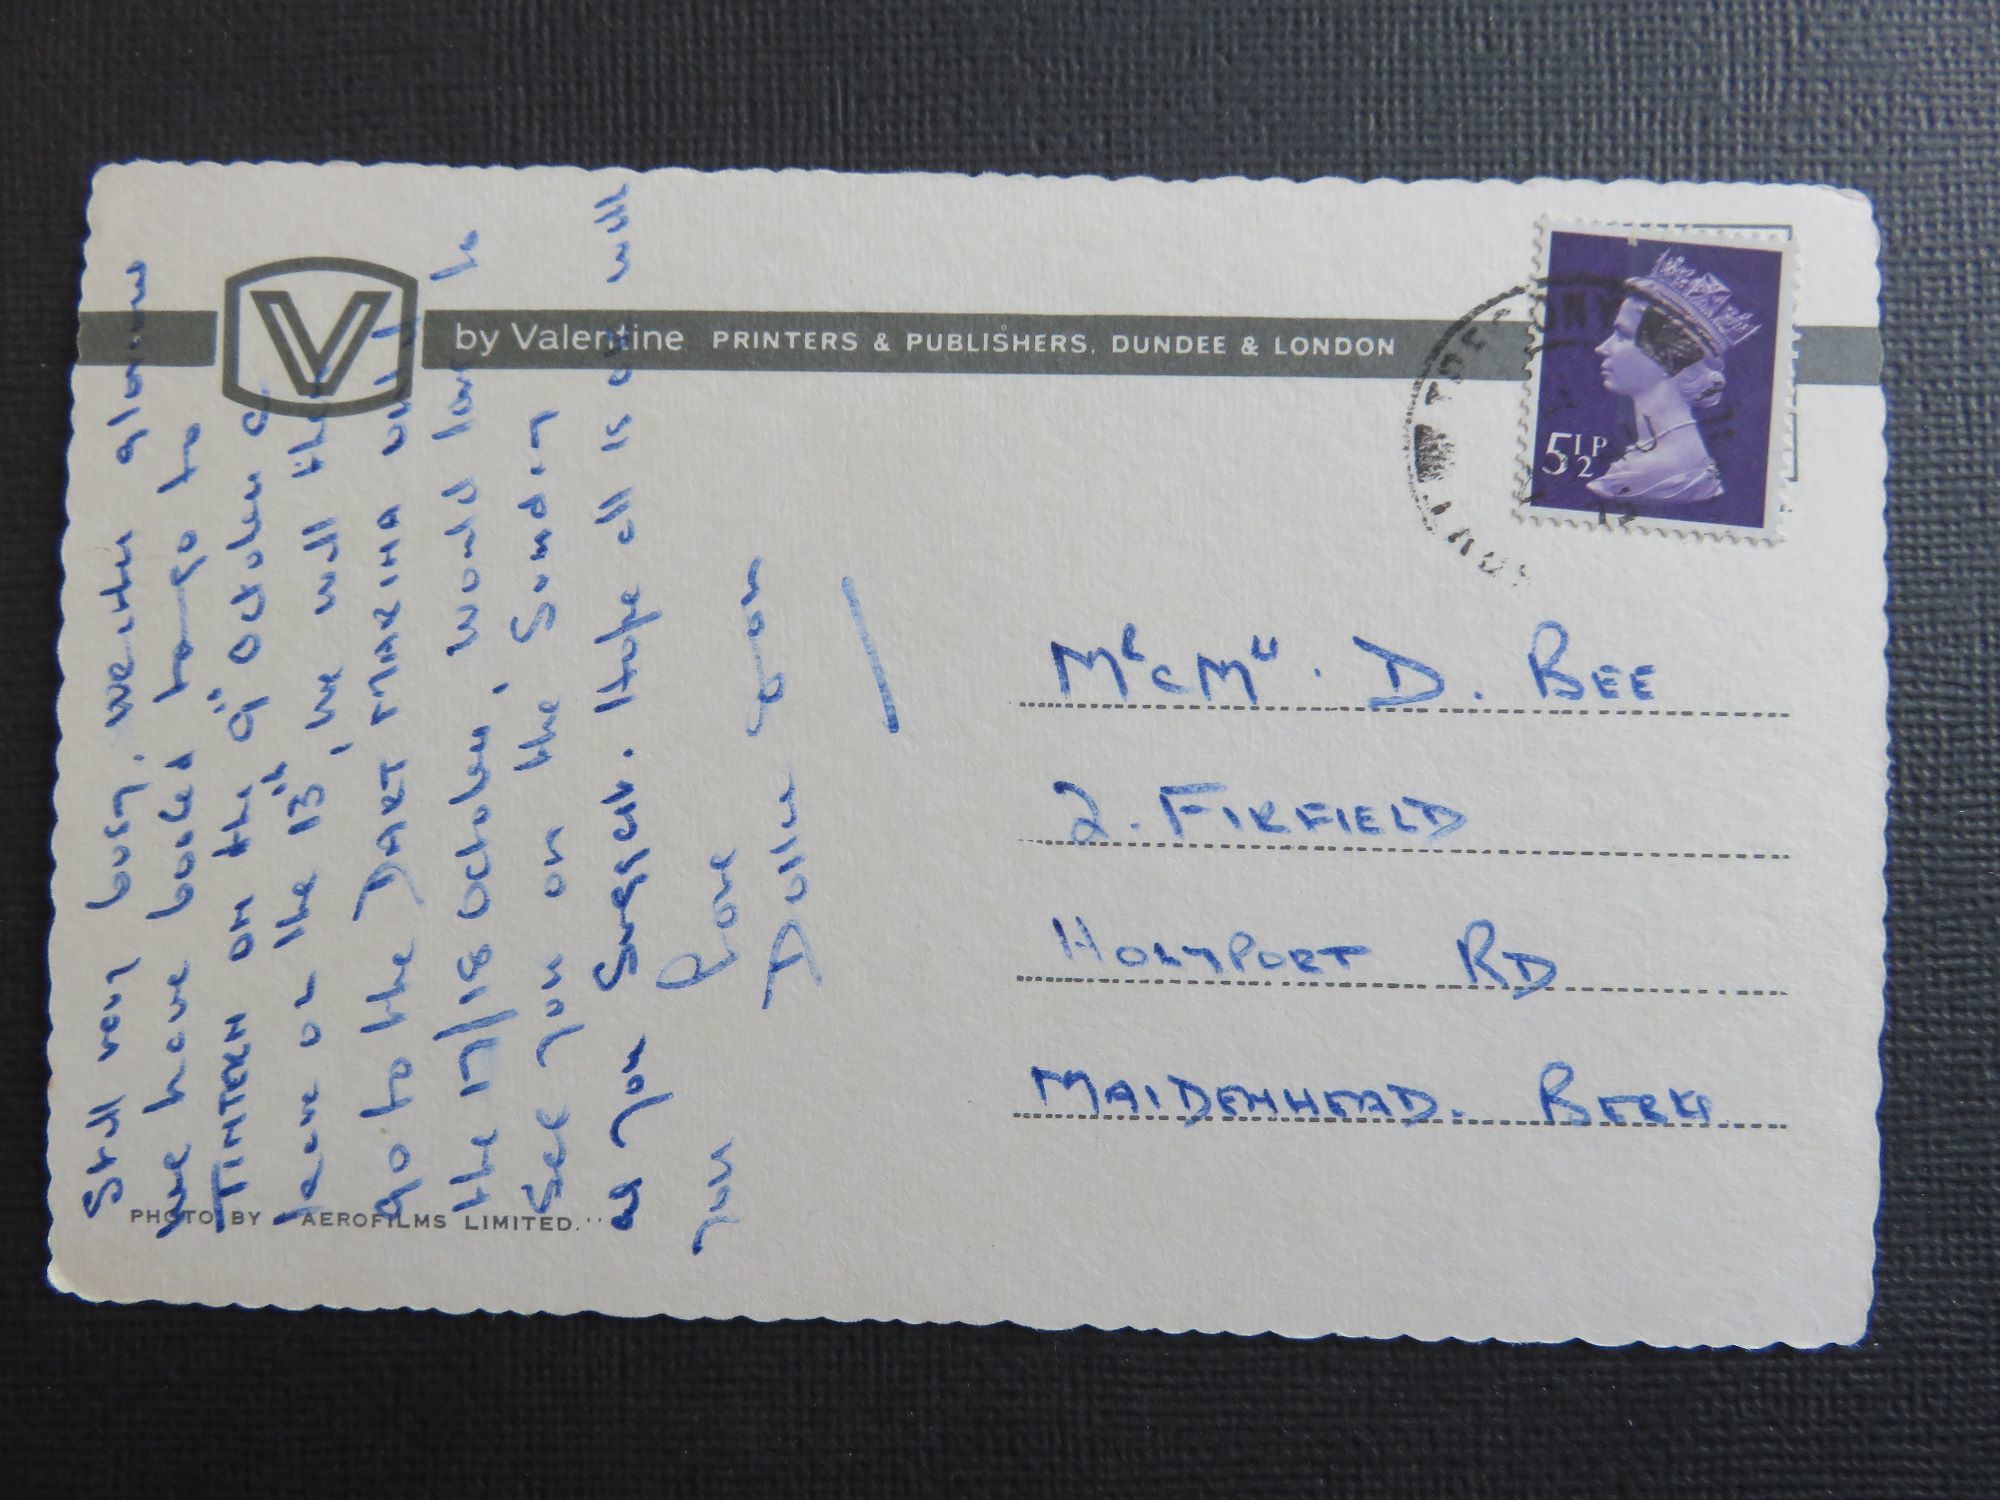 by Valentine PRINTERS & PUBLISHERS, DUNDEE & LONDON
5½P
Still very busy, weather glorious
we have booked to go to
TINTERN on the 9th October
leave on the 13th, we will then
go to the DART MARINA until
the 17/18 October, would love to
see you on the Sunday
as you suggest. Hope all is well
you
Love
PHOTO BY AEROFILMS LIMITED.
Mr & Mrs. D. BEE
2. FIRFIELD
HOLYPORT RD
MAIDENHEAD. BERKS.